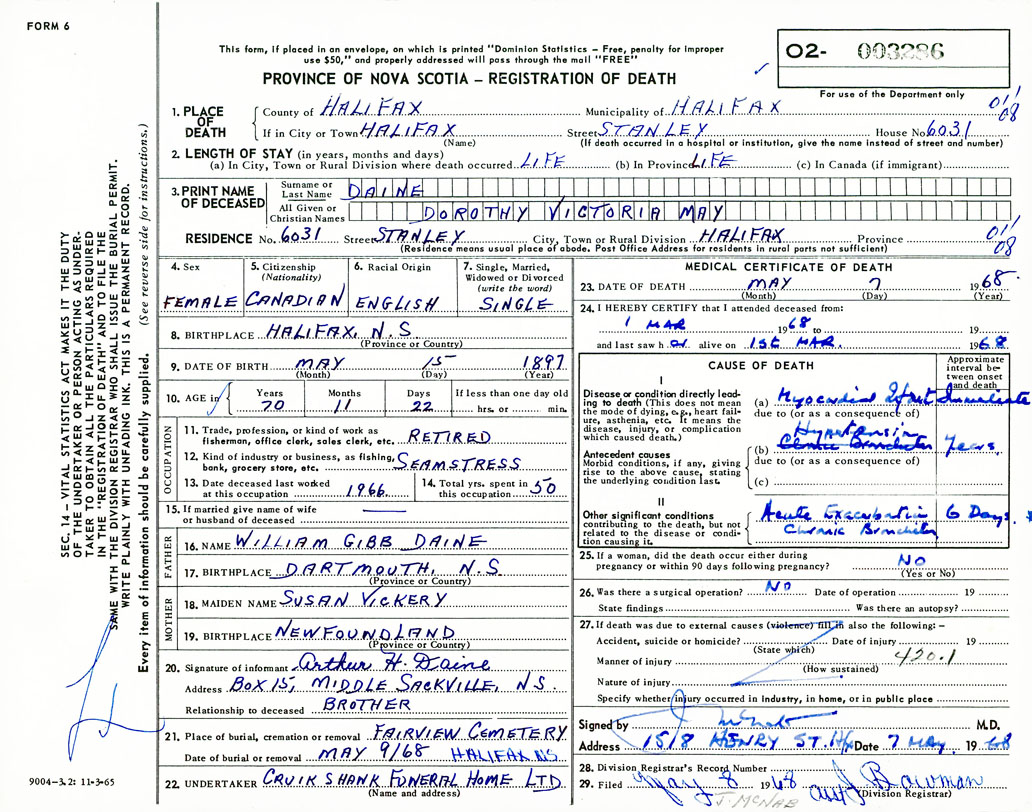 FORM 6
This form, if placed in an envelope, on which is printed "Dominion Statistics – Free, penalty for improper
use $50," and properly addressed will pass through the mail "FREE"
PROVINCE OF NOVA SCOTIA – REGISTRATION OF DEATH
O2- 003286
For use of the Department only
1. PLACE OF DEATH
County of HALIFAX Municipality of HALIFAX 01/08
If in City or Town HALIFAX Street STANLEY House No. 6031
(Name) (If death occurred in a hospital or institution, give the name instead of street and number)
2. LENGTH OF STAY (in years, months and days)
(a) In City, Town or Rural Division where death occurred LIFE (b) In Province LIFE (c) In Canada (if immigrant)
3. PRINT NAME OF DECEASED
Surname or Last Name DAINE
All Given or Christian Names DOROTHY VICTORIA MAY
RESIDENCE No. 6031 Street STANLEY City, Town or Rural Division HALIFAX Province 01/08
(Residence means usual place of abode. Post Office Address for residents in rural parts not sufficient)
4. Sex FEMALE
5. Citizenship (Nationality) CANADIAN
6. Racial Origin ENGLISH
7. Single, Married, Widowed or Divorced (write the word) SINGLE
8. BIRTHPLACE HALIFAX, N.S.
(Province or Country)
9. DATE OF BIRTH MAY 15 1897
(Month) (Day) (Year)
10. AGE in Years 70 Months 11 Days 22 If less than one day old hrs. or min.
OCCUPATION
11. Trade, profession, or kind of work as
fisherman, office clerk, sales clerk, etc. RETIRED
12. Kind of industry or business, as fishing,
bank, grocery store, etc. SEAMSTRESS
13. Date deceased last worked
at this occupation 1966
14. Total yrs. spent in
this occupation 50
15. If married give name of wife
or husband of deceased
FATHER
16. NAME WILLIAM GIBB DAINE
17. BIRTHPLACE DARTMOUTH, N.S.
(Province or Country)
MOTHER
18. MAIDEN NAME SUSAN VICKERY
19. BIRTHPLACE NEWFOUNDLAND
(Province or Country)
20. Signature of informant Arthur H. Daine
Address BOX 15, MIDDLE SACKVILLE, N.S.
Relationship to deceased BROTHER
21. Place of burial, cremation or removal FAIRVIEW CEMETERY
Date of burial or removal MAY 9/68 HALIFAX NS
22. UNDERTAKER CRUIKSHANK FUNERAL HOME LTD
(Name and address)
MEDICAL CERTIFICATE OF DEATH
23. DATE OF DEATH MAY 7 1968
(Month) (Day) (Year)
24. I HEREBY CERTIFY that I attended deceased from:
1 MAR 1968 to 19
and last saw h er alive on 1ST MAR. 1968
CAUSE OF DEATH
Approximate interval between onset and death
I
Disease or condition directly leading to death (This does not mean
the mode of dying, e.g., heart failure, asthenia, etc. It means the
disease, injury, or complication
which caused death.)
(a) Myocardial Infarct Immediate
due to (or as a consequence of)
Hypertension
(b) Chronic Bronchitis Years
due to (or as a consequence of)
(c)
Antecedent causes
Morbid conditions, if any, giving
rise to the above cause, stating
the underlying condition last.
II
Other significant conditions
contributing to the death, but not
related to the disease or condition causing it.
Acute Exacerbation 6 Days
Chronic Bronchitis
25. If a woman, did the death occur either during
pregnancy or within 90 days following pregnancy? NO
(Yes or No)
26. Was there a surgical operation? NO Date of operation 19
State findings Was there an autopsy?
27. If death was due to external causes (violence) fill in also the following: –
Accident, suicide or homicide? Date of injury 19
(State which)
Manner of injury 420.1
(How sustained)
Nature of injury
Specify whether injury occurred in industry, in home, or in public place
Signed by J McNab M.D.
Address 1518 HENRY ST. Hfx Date 7 MAY 1968
28. Division Registrar's Record Number
29. Filed May 8 1968 J Bowman
(Division Registrar)
J. MCNAB
SEC. 14 – VITAL STATISTICS ACT MAKES IT THE DUTY
OF THE UNDERTAKER OR PERSON ACTING AS UNDER-
TAKER TO OBTAIN ALL THE PARTICULARS REQUIRED
IN THE "REGISTRATION OF DEATH" AND TO FILE THE
SAME WITH THE DIVISION REGISTRAR WHO SHALL ISSUE THE BURIAL PERMIT.
WRITE PLAINLY WITH UNFADING INK. THIS IS A PERMANENT RECORD.
Every item of information should be carefully supplied. (See reverse side for instructions.)
9004-3.2: 11-3-65